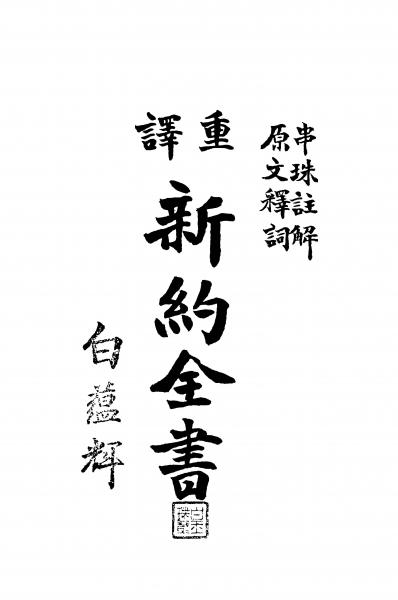 串珠註解
原文釋詞
重譯
新約全書
白蘊輝